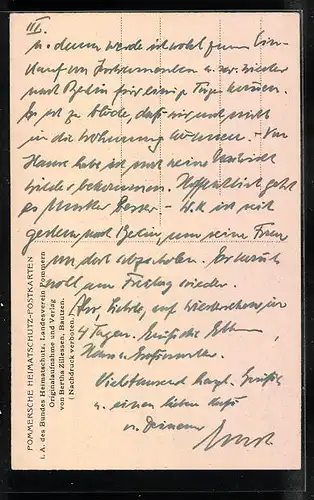 III.
u. dann werde ich wohl zum Ein-
kauf von Instrumenten u. s. w. wieder
nach Berlin für einige Tage kommen.
Es ist zu blöde, daß wir uns nicht
in die Wohnung können. - Von
Hans habe ich noch keine Nachricht
wieder bekommen. Hoffentlich geht
es Mutter besser - H.K ist seit
gestern nach Berlin, um seine Frau
von dort abzuholen. Er
wohl am Freitag wieder.
Also, Liebste, auf Wiedersehen in
4 Tagen. Grüße die Eltern,
Hans u. Großmutter.
Vieltausend herzl. Grüße
u. einen lieben Kuß
v. Deinem
POMMERSCHE HEIMATSCHUTZ-POSTKARTEN
i. A. des Bundes Heimatschutz, Landesverein Pommern
Originalaufnahme und Verlag
von Bertha Zillessen, Bautzen.
(Nachdruck verboten.)